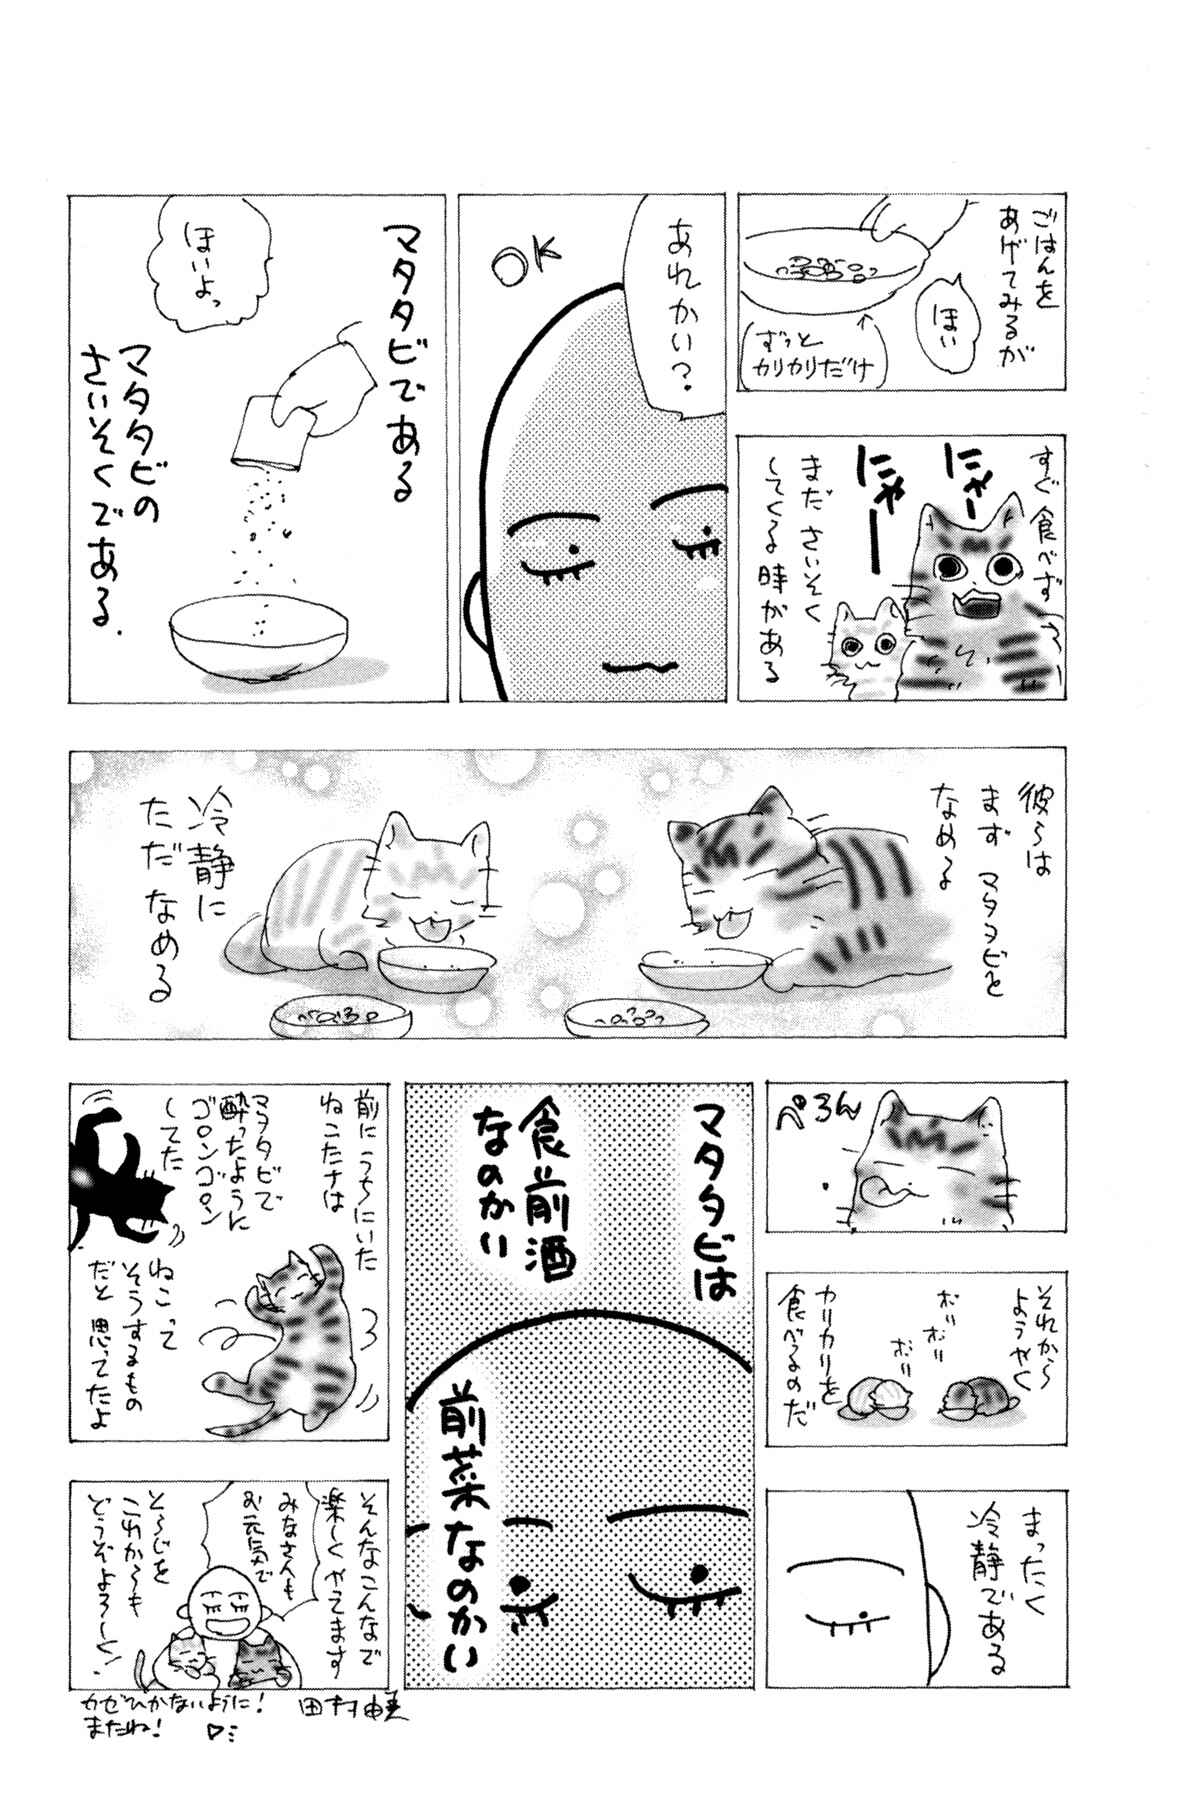 ごはんを
あげてみるが
ほい
ずっと
カリカリだけ
すぐ食べず
にゃー
にゃー
まださいそく
してくる時がある
あれかい?
OK
マタタビである
ほいよっ
マタタビの
さいそくである.
彼らは
まずマタタビを
なめる
冷静に
ただなめる
ぺろん
それから
ようやく
ポリ
ポリ
ポリ
カリカリを
食べるのだ
まったく
冷静である
マタタビは
食前酒
なのかい
前菜なのかい
前にうちにいた
ねこたちは
マタタビで
酔ったように
ゴロンゴロン
してた
ねこって
そうするもの
だと思ってたよ
そんなこんなで
楽しくやてます
みなさんも
お元気で
そらじを
これからも
どうぞよろしく!
カゼひかないように!
またね!
田村由美